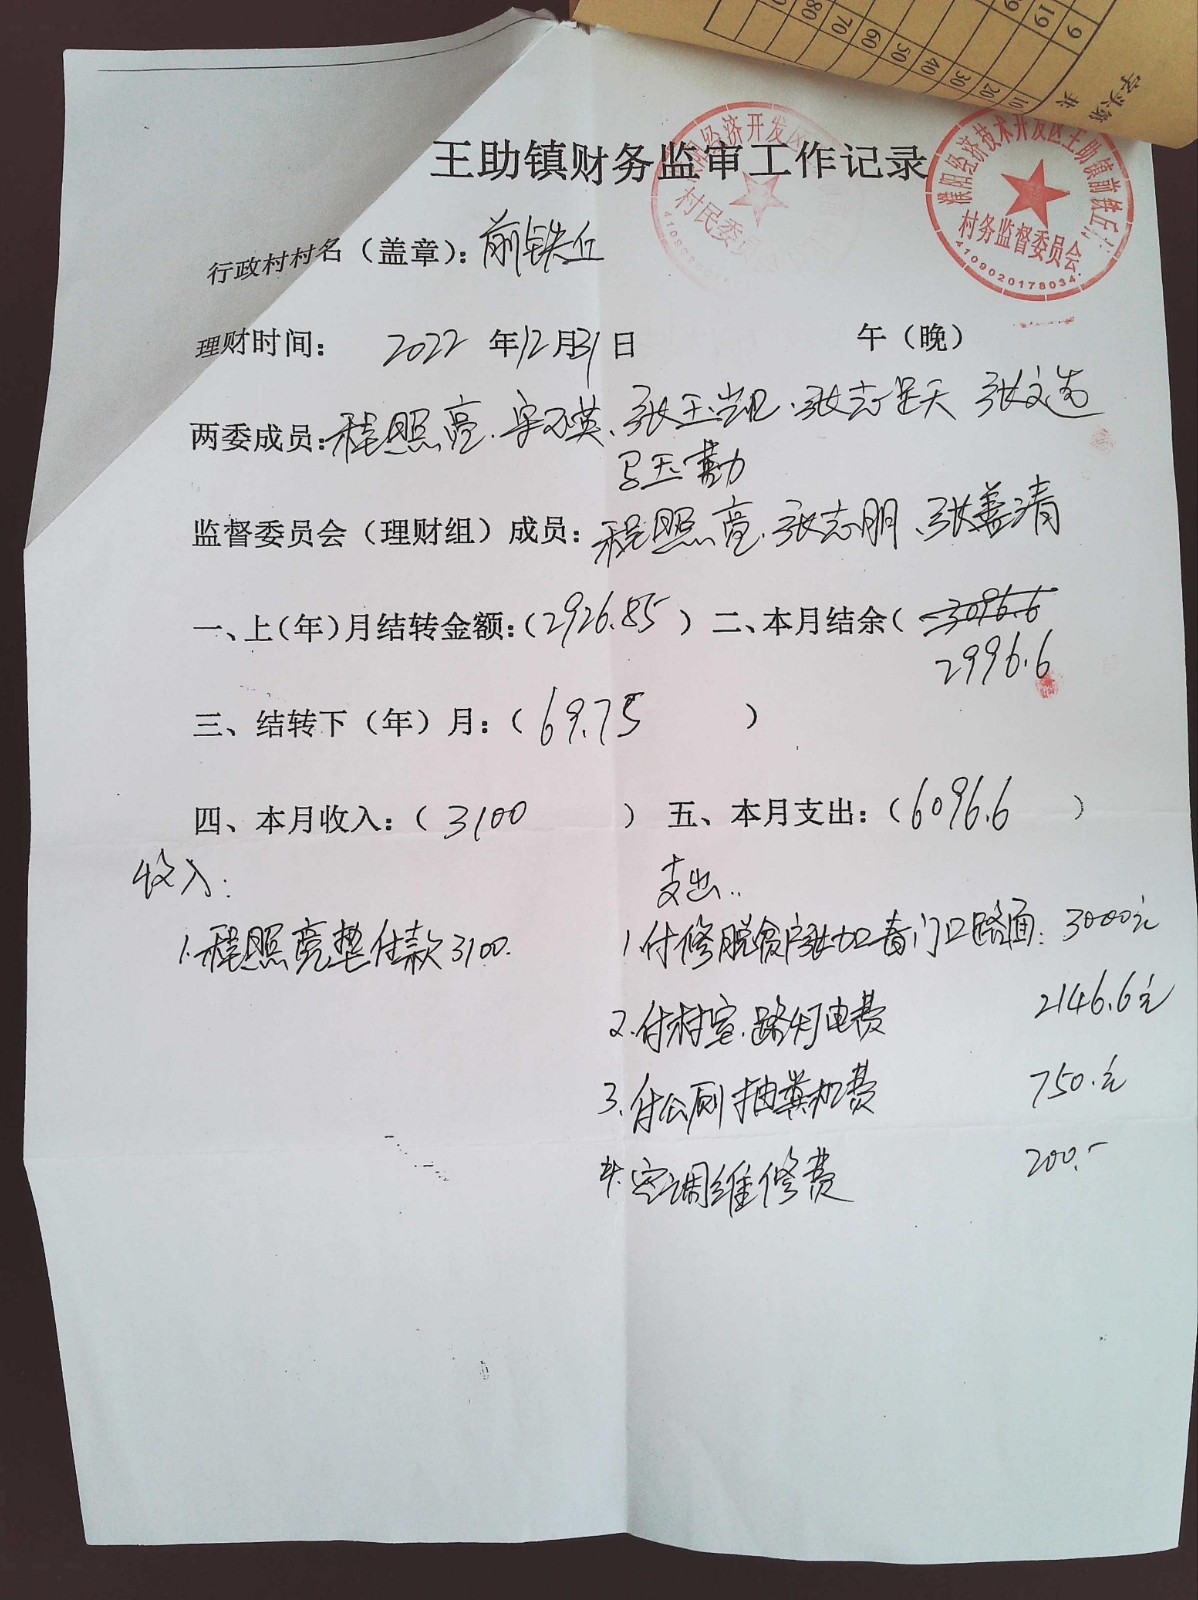 9
19
10 20 30 40 50 60 70 80
共
字头第
王助镇财务监审工作记录
濮阳经济技术开发区王助镇前铁丘
村务监督委员会
4109020178034
经济开发区
村民委
行政村村名（盖章）：前铁丘
理财时间： 2022 年12月31日 午（晚）
两委成员：程照亮、宋不英、张玉岩、张志 张文选
马玉勤
监督委员会（理财组）成员：程照亮、张志朋、张善清
一、上（年）月结转金额：（2926.85）二、本月结余（3096.6
2996.6
三、结转下（年）月：（69.75 ）
四、本月收入：（3100 ） 五、本月支出：（6096.6 ）
收入： 支出：
1.程照亮垫付款3100. 1.付修脱贫户张加春门口路面：3000元
2.付村室.路灯电费 2146.6元
3.付公厕抽粪机费 750.元
4.空调维修费 200.-